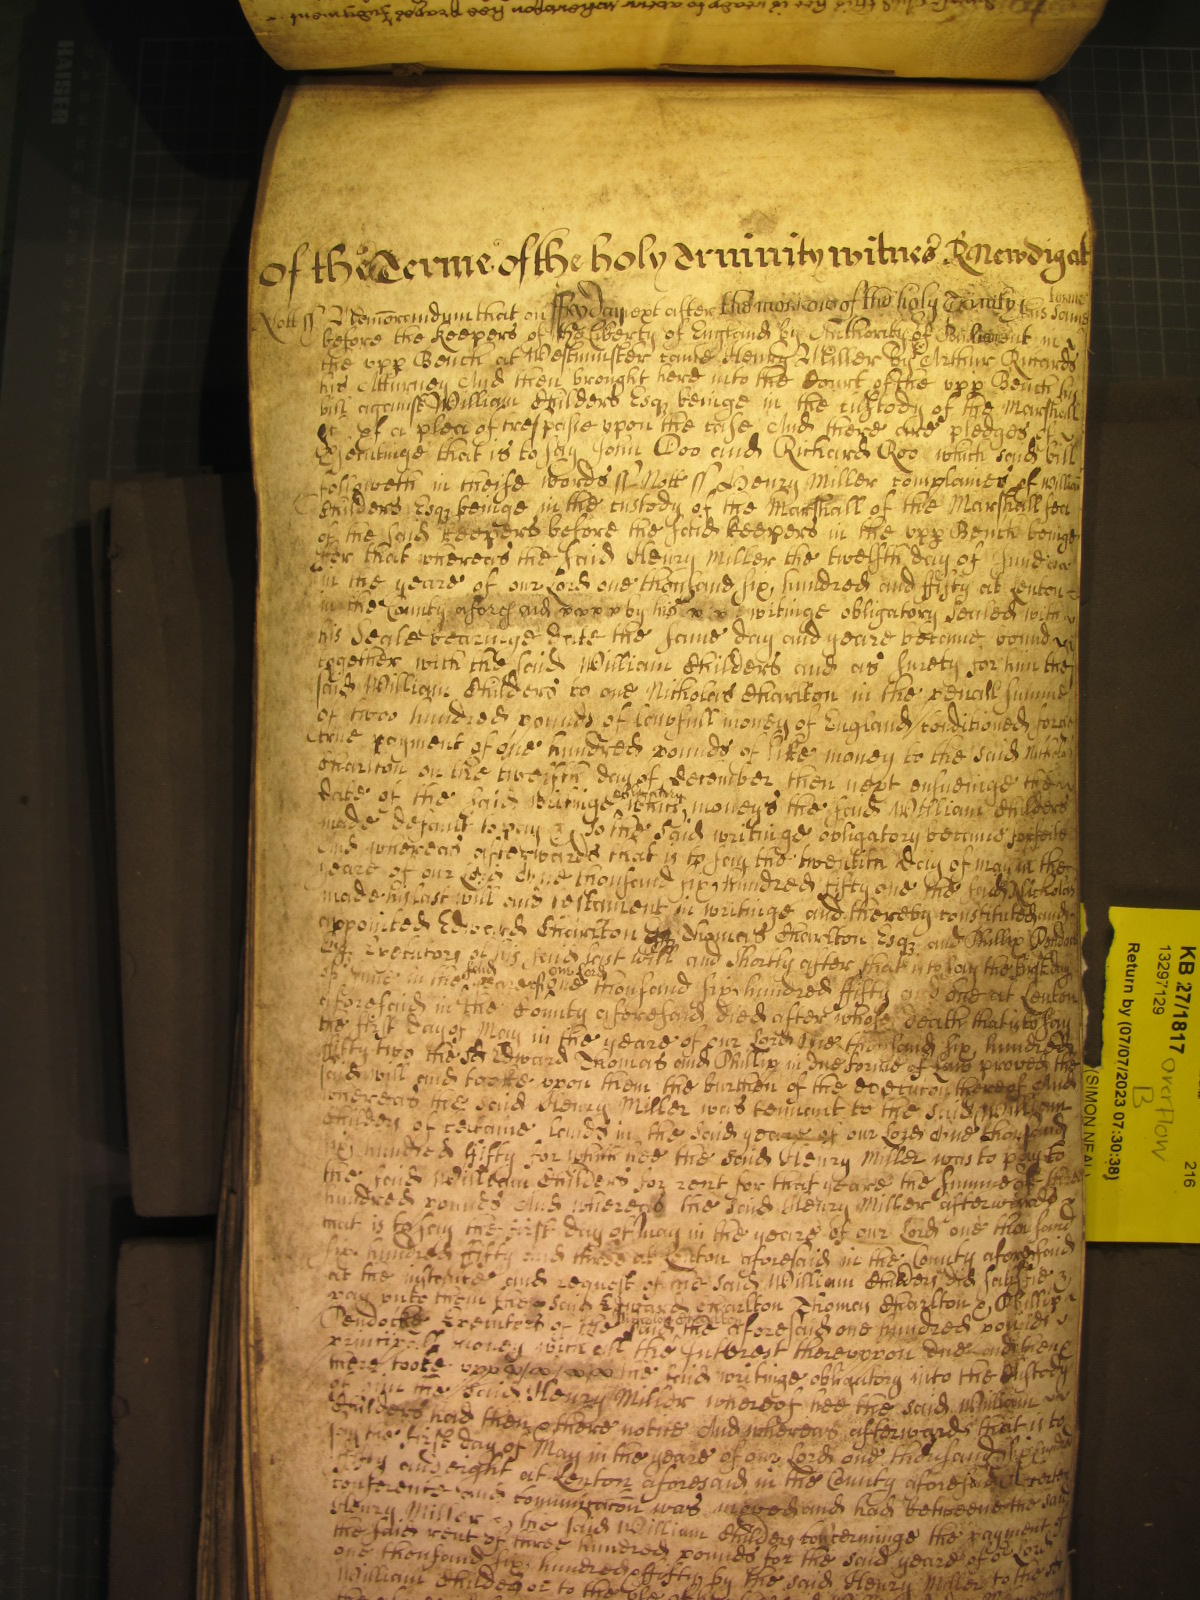 Of the Terme of the holy Trinity witnes R Newdigat
Nott ss Memorandum that on ffryday next after the morrow of the holy Trinity this same terme
before the Keepers of the liberty of England by Authority of Parliament in
the upp Bench at Westminster came Henry Miller by Arthur Riccards
his Atturney And then brought here into the Court of the upp Bench his
bill against William Childers Esqr beinge in the custody of the Marshall
&c of a plea of trespasse upon the case And there are pledges of
prosecutinge that is to say John Doo and Richard Roo which said bill
followeth in theise words ss Nott ss Henry Miller complaines of William
Childers Esqr beinge in the custody of the Marshall of the Marshallsea
of the said Keepers before the said Keepers in the upp Bench beinge
for that whereas the said Henry Miller the twelfth day of June
in the yeare of our Lord one thousand six hundred and fifty at Lenton
in the County aforesaid by his writinge obligatory sealed with
his Seale bearinge date the same day and yeare became bound
together with the said William Childers and as surety for him the
said William Childers to one Nicholas Charlton in the penall summe
of twoo hundred pounds of lawfull money of England conditioned for the
true payment of one hundred pounds of like money to the said Nicholas
Charlton on the twelfth day of December then next ensueinge the
date of the said writinge obligatory which moneys the said William Childers
made default to pay & so the said writinge obligatory became forfeite
And whereas afterwards that is to say the twentith day of may in the
yeare of our Lord One thousand six hundred fifty one the said Nicholas
made his last will and testament in writinge and thereby constituted and
appointed Edward Charlton Thomas Charlton Esqr and Phillip Pendock
Esqr Executors of his said last will and shortly after that is to say the first day
of June in the said yeare of our Lord One thousand six hundred fifty and one at Lenton
aforesaid in the County aforesaid died after whose death that is to say
the first day of May in the yeare of our Lord One thousand six hundred
fifty two the sd Edward Thomas and Phillip in due forme of law proved the
said will and tooke upon them the burthen of the execution thereof And
whereas the said Henry Miller was tennant to the said William
Childers of certaine lands in the said yeare of our Lord One thousand
six hundred fifty for which hee the said Henry Miller was to pay to
the said William Childers for rent for that yeare the summe of three
hundred pounds And whereas the said Henry Miller afterwards
that is to say the first day of May in the yeare of our Lord one thousand
six hundred fifty and three at Lenton aforesaid in the County aforesaid
at the instance and request of the said William Childers did satisfie &
pay unto them the said Edward Charlton Thomas Charlton & Phillip
Pendocke Executors of the said Nicholas Charlton the aforesaid one hundred pounds
principall money with all the Interest thereuppon due and then &
there tooke upp the said writinge obligatory into the Custody
of him the said Henry Miller whereof hee the said William
Childers had then & there notice And whereas afterwards that is to
say the first day of May in the yeare of our Lord one thousand six hundred
fifty and eight at Lenton aforesaid in the County aforesaid a certen
conference and comunicacon was moved and had betweene the said
Henry Miller & the said William Childers concerninge the payment of
the said rent of three hundred pounds for the said yeare of our Lord
one thousand six hundred & fifty by the said Henry Miller to the sd
William Childers or to the use of
KB 27/1817
13297129
216
overflow
B
(SIMON NEAL)
Return by (07/07/2023 07:30:38)
KAISER